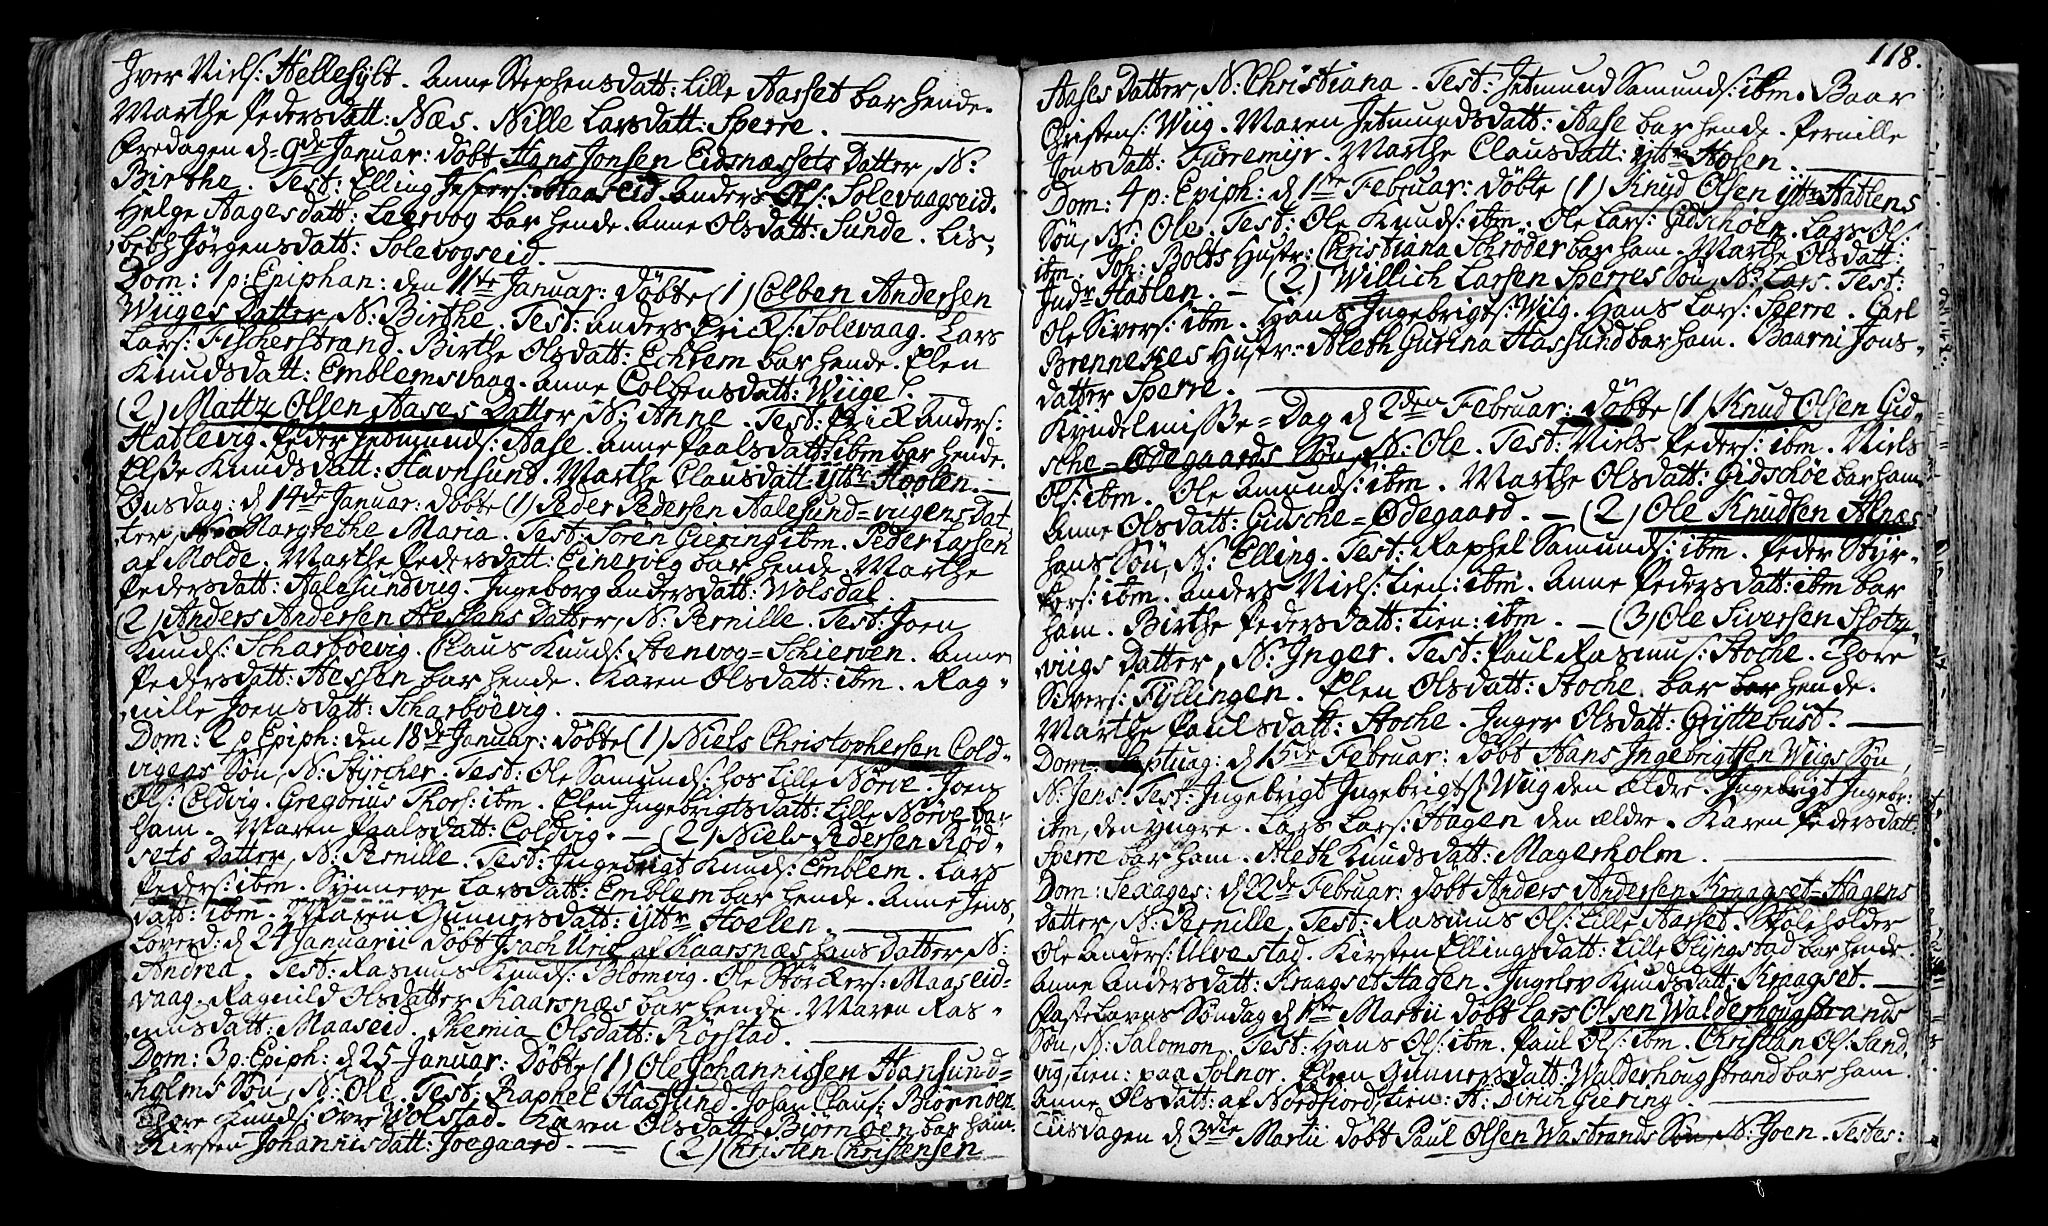 Iver Niels: Hellesylt. Anne Stephensdatt: Lille Aarset bar hende.
Marthe Pedersdatt: Næs. Nille Larsdatt: Sperre.
Fredagen d= 9de Januar: döbt Hans Jonsen Eidsnæssets Datter, N:
Birthe. Test: Elling Jespers: Maaseid. Anders Ols: Solevaagseid.
Helge Aagesdatt: Leervog bar hende. Anne Olsdatt: Sunde. Lis-
beth Jörgensdatt: Solevogseid.
Dom: 1 p: Epiphan: den 11te Januar: döbte (1) Colben Andersen
Wiiges Datter, N: Birthe. Test: Anders Ericks: Solevaag. Lars
Lars: Fischerstrand. Birthe Olsdatt: Echrem bar hende. Elen
Knudsdatt: Emblemsvaag. Anne Colbensdatt: Wiige.
(2) Mattz Olsen Aases Datter, N: Anne. Test: Erick Anders:
Hatlevig. Peder Jetmunds: Aase. Anne Paalsdatt: ibm bar hende.
Elsße Knudsdatt: Havnsund. Marthe Clausdatt: yttr Hoelen.
Onsdag: d 14de Januar: döbte (1) Peder Pedersen Aalesund=viigens Dat-
ter, Margrethe Maria. Test: Sören Giering ibm. Peder Larsen
af Molde. Marthe Pedersdatt: Einervig bar hende. Marthe
Pedersdatt: Aalesundvig. Ingeborg Andersdatt: Wolsdal.
(2) Anders Andersen Hessans Datter, N: Pernille. Test: Joen
Knuds: Scharböevig. Claus Knuds: Stenvog=Schierven. Anne
Pedersdatt: Hessen bar hende. Karen Olsdatt: ibm. Rag-
nille Joensdatt: Scharböevig.
Dom: 2 p Epiph: den 18de Januar: döbte (1) Niels Christophersen Cold-
vigens Sön, N: Styrcher. Test: Ole Samunds: hos Lille Nörve. Joen
Ols: Coldvig. Gregorius Thors: ibm. Elen Ingebrigtsdatt: Lille Nörve bar
ham. Maren Paalsdatt: Coldvig. — (2) Niels Pedersen Röd-
sets Datter, N: Pernille. Test: Ingebrigt Knuds: Emblem. Lars
Peders: ibm. Synneve Larsdatt: Emblem bar hende. Anne Jens-
datt: ibm. Maren Gunnersdatt: yttr Hoelen.
Löverd: d 24 Januarii döbt Isach Uric af Kaarsnæs hans Datter, N:
Andrea. Test: Rasmus Knuds: Blomvig. Ole Störkers: Maaseid-
vaag. Ragnild Olsdatter Kaarsnæs bar hende. Maren Ras-
musdatt: Maaseid. Themia Olsdatt: Rörstad.
Dom: 3 p: Epiph: d 25 Januar: döbte (1) Ole Johannissen Hansund-
holms Sön, N: Ole. Test: Raphel Hassund. Johan Claus: Biörnöen.
Thore Knuds: Övre Wolstad. Karen Olsdatt: Biörnöen bar ham.
Kirsten Johannisdatt: Joegaard. — (2) Christen Christensen
118.
Aases Datter, N: Christiana. Test: Jetmund Samunds: ibm. Baar
Christens: Wiig. Maren Jetmundsdatt: Aase bar hende. Pernille
Jonsdatt: Furremyr. Marthe Clausdatt: yttr Hosen.
Dom: 4 p: Epiph: d 1te Februar: döbte (1) Knud Olsen yttr Hatlens
Sön, N: Ole. Test: Ole Knuds: ibm. Ole Lars: Gidschöen. Lars Ols:
ibm. Joh: Bolts Hustr: Christiana Schröder bar ham. Marthe Olsdatt:
Indr Hatlen. — (2) Willich Larsen Sperres Sön, N: Lars. Test:
Ole Sivers: ibm. Hans Ingebrigts: Wiig. Hans Lars: Sperre. Carl
Brenneckes Hustr: Aleth Gurina Hassund bar ham. Baarni Jons-
datter Sperre.
Kyndelmisße=Dag d 2den Februar: döbte (1) Knud Olsen Gid-
sche=Ödegaards Sön, N: Ole. Test: Niels Peders: ibm. Niels
Ols: ibm. Ole Amunds: ibm. Marthe Olsdatt: Gidschöe bar ham.
Anne Olsdatt: Gidsche=Ödegaard. — (2) Ole Knudsen Alnæs
hans Sön, N: Elling. Test: Raphel Samunds: ibm. Peder Styr-
kers: ibm. Anders Niels: tien: ibm. Anne Pedersdatt: ibm bar
ham. Birthe Pedersdatt: tien: ibm. — (3) Ole Siversen Slotz-
viigs Datter, N: Inger. Test: Paul Rasmus: Stoche. Thore
Sivers: Fyllingen. Elen Olsdatt: Stoche bar bar hende.
Marthe Paulsdatt: Stoche. Inger Olsdatt: Gryttebust.
Dom: Septuag: d 15de Februar: döbt Hans Ingebrigtsen Wiigs Sön,
N: Jens. Test: Ingebrigt Ingebrigts: Wiig den Ældre. Ingebrigt Ingebr:
ibm, den yngre. Lars Lars: Hagen den ældre. Karen Pedersdatt:
Sperre bar ham. Aleth Knudsdatt: Magerholm.
Dom: Sexages: d 22de Februar: döbt Anders Andersen Kraagset=Hagens
Datter, N: Pernille. Test: Rasmus Ols: Lille Aarset. Skoleholder
Ole Anders: Ulvestad. Kirsten Ellingsdatt: Lille Slyngstad bar hende.
Anne Andersdatt: Kraagset Hagen. Ingelev Knudsdatt: Kraagset.
Fastelavns Söndag d 1te Martii döbt Lars Olsen Walderhougstrands
Sön, N: Salomon. Test: Hans Ols: ibm. Paul Ols: ibm. Christian Ols: Sand-
vig, tien: paa Solnor. Elen Gunnersdatt: Walderhoug strand bar ham.
Anne Olsdatt: af Nordfiord, tien: H: Dirich Giering.
Tiisdagen d 3die Martii döbt Paul Olsen Wastrands Sön, N: Joen. Testes: